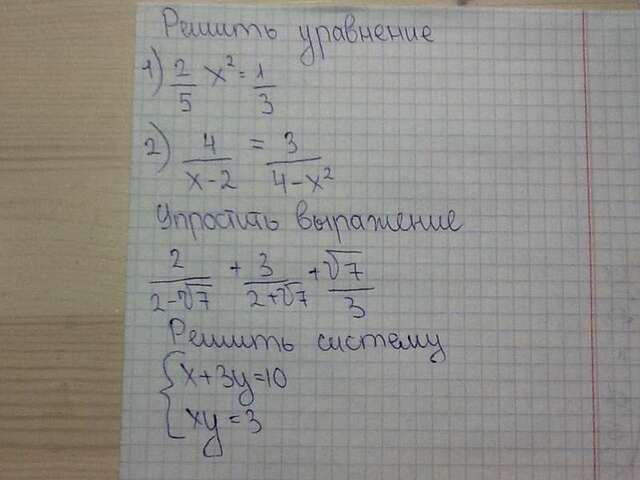 Решить уравнение
1) 2/5 x² = 1/3
2) 4/(x-2) = 3/(4-x²)
Упростить выражение
2/(2-√7) + 3/(2+√7) + √7/3
Решить систему
{x+3y=10
xy=3